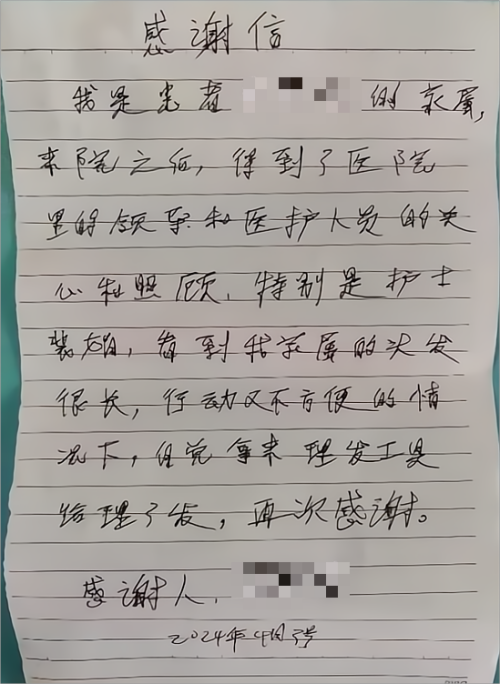 感谢信
我是患者 的家属,
来院之后，得到了医院
里的领导和医护人员的关
心和照顾，特别是护士
裴 ，看到我家属的头发
很长，行动又不方便的情
况下，自觉拿来理发工具
给理了发，再次感谢。
感谢人.
2024年4月3号